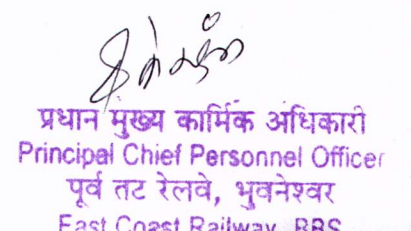 प्रधान मुख्य कार्मिक अधिकारी
Principal Chief Personnel Officer
पूर्व तट रेलवे, भुवनेश्वर
East Coast Railway, BBS